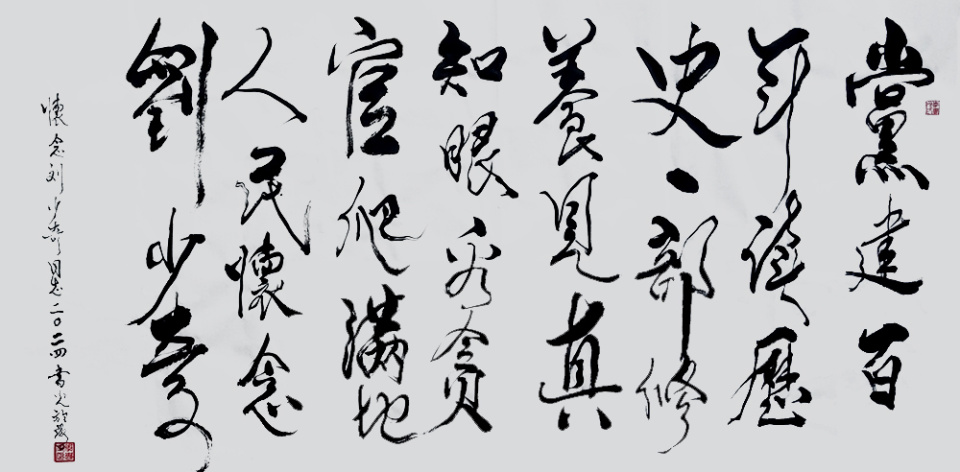 黨建百
年讀歷
史一部修
養見真
知眼看貪
官爬滿地
人民懷念
劉少奇
懷念刘少奇同志二〇二四書